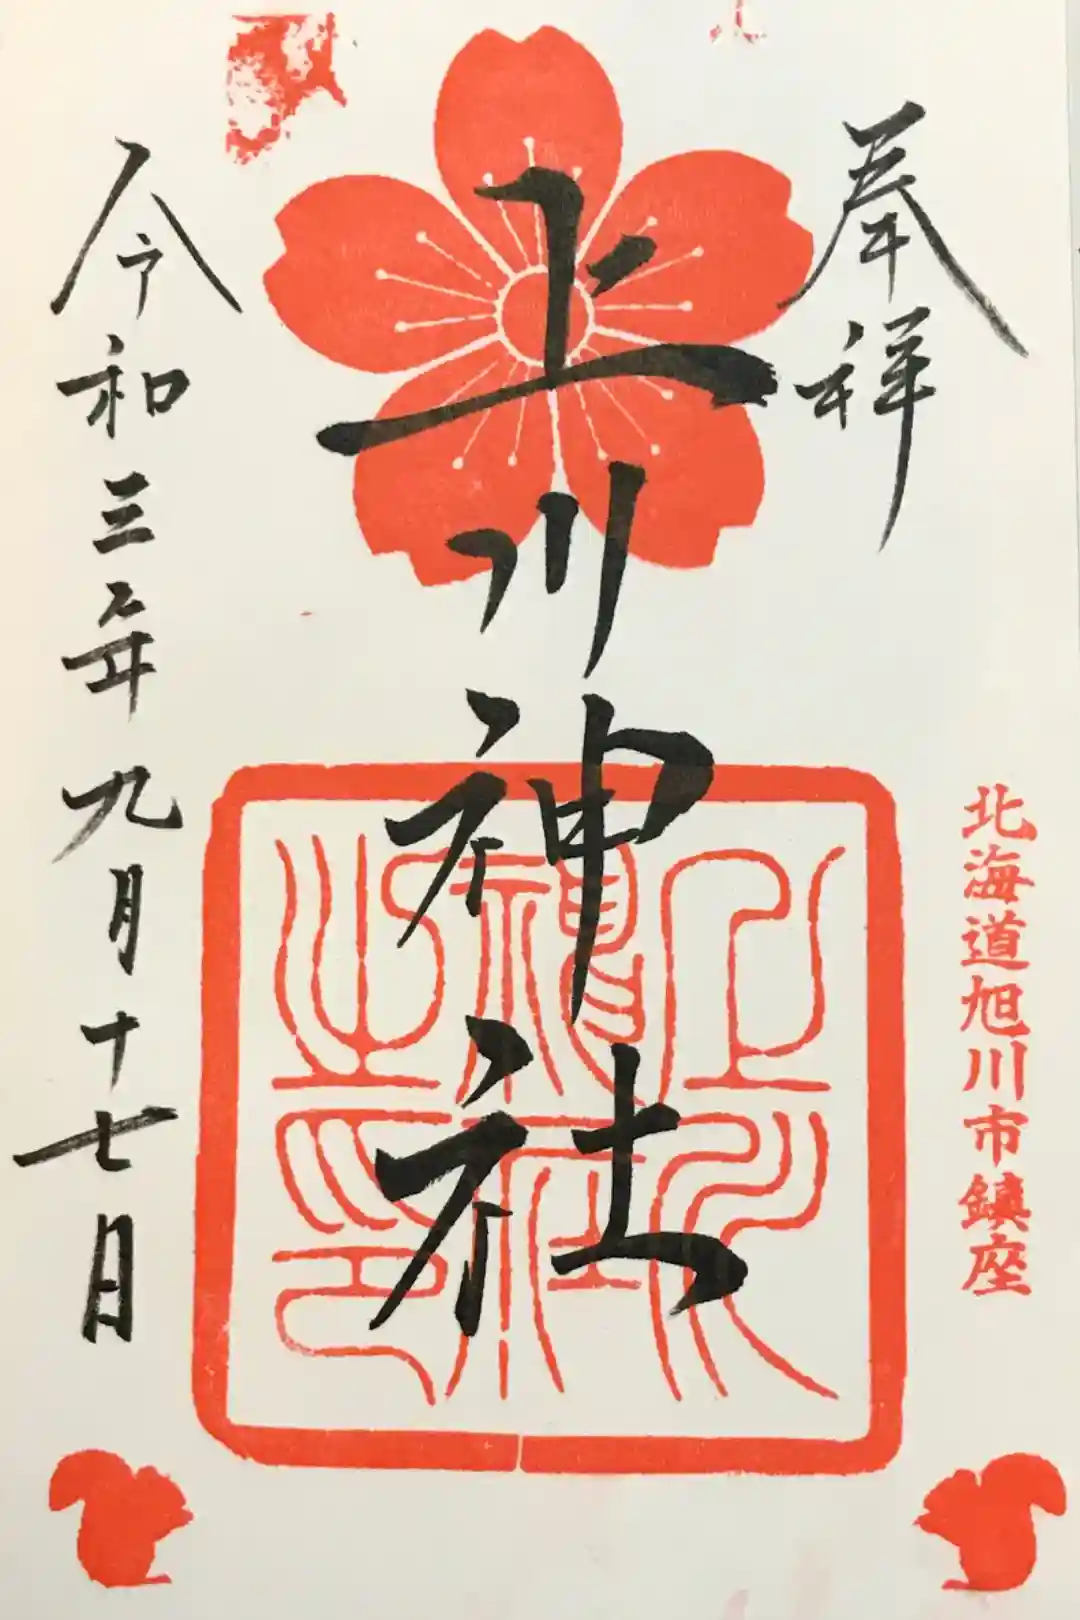 奉拝
北海道旭川市鎮座
上川神社
上川神社之印
令和三年九月十七日